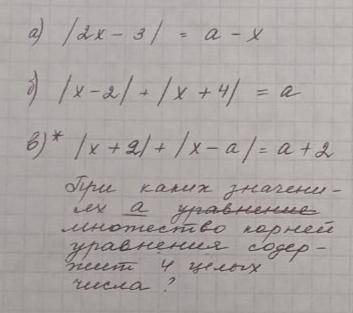 а) |2x - 3| = a - x
б) |x - 2| + |x + 4| = a
в)* |x + 2| + |x - a| = a + 2
При каких значени-
ях a уравнение
множество корней
уравнения содер-
жит 4 целых
числа?